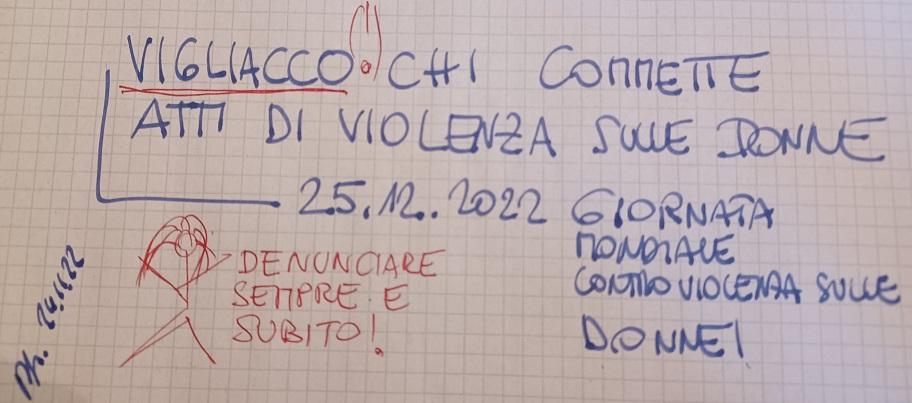 VIGLIACCO! CHI COMMETTE
ATTI DI VIOLENZA SULLE DONNE
25.12.2022 GIORNATA
MONDIALE
CONTRO VIOLENZA SULLE
DONNE!
DENUNCIARE
SEMPRE E
SUBITO!
Ph. 24.11.22